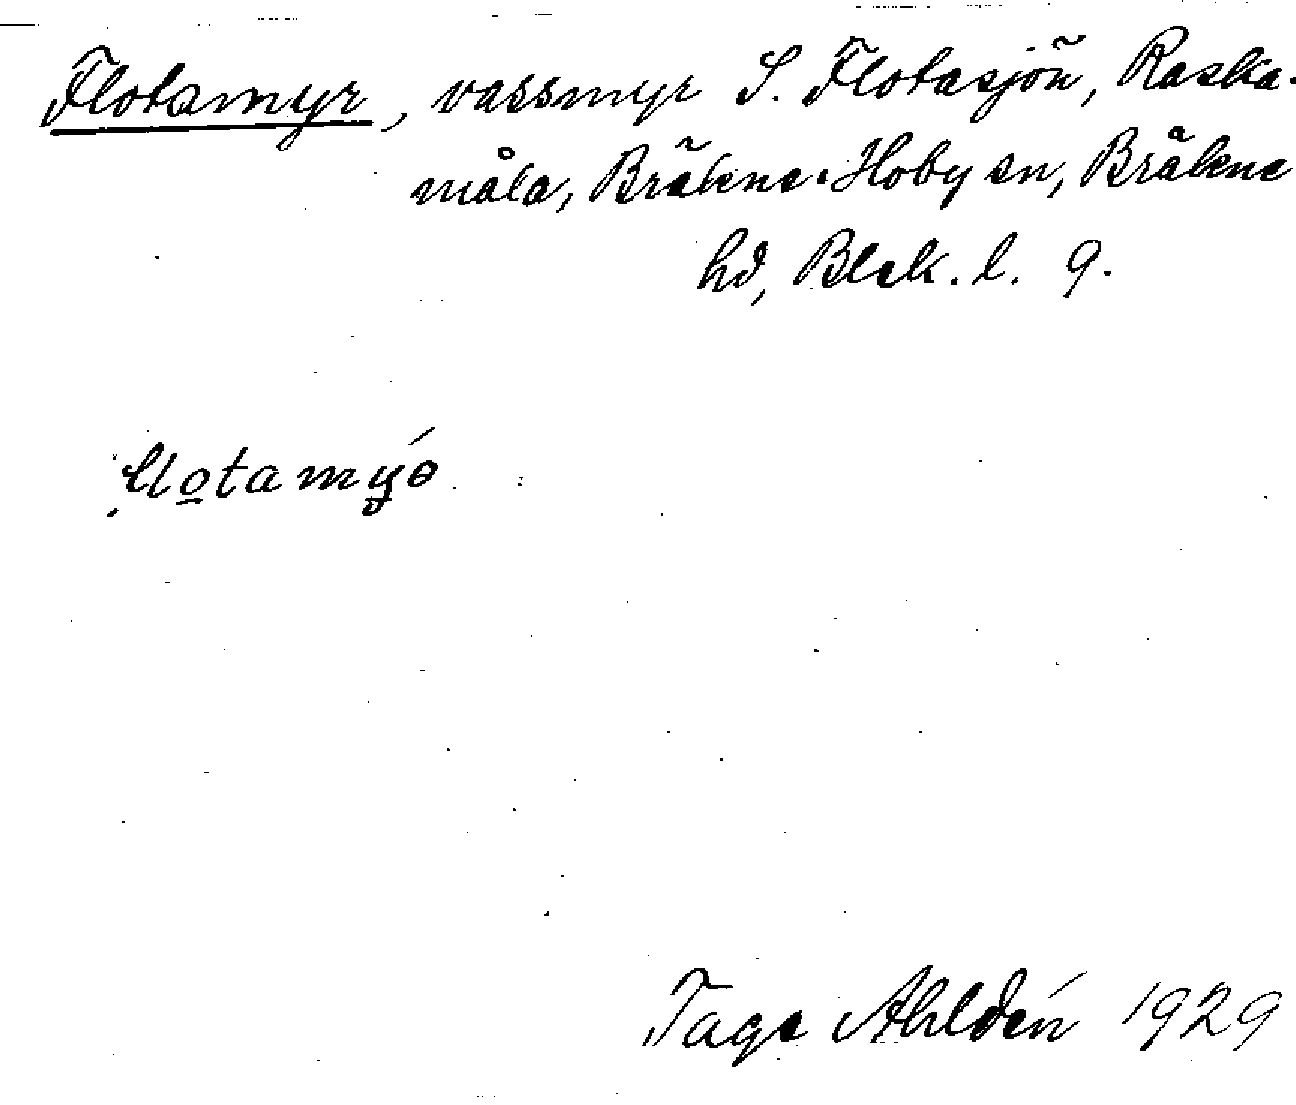 Flotamyr, vassmyr S. Flotasjön, Raska-
måla, Bräkne-Hoby sn, Bräkne
hd, Blek. l. 9.
Tage Ahldén 1929